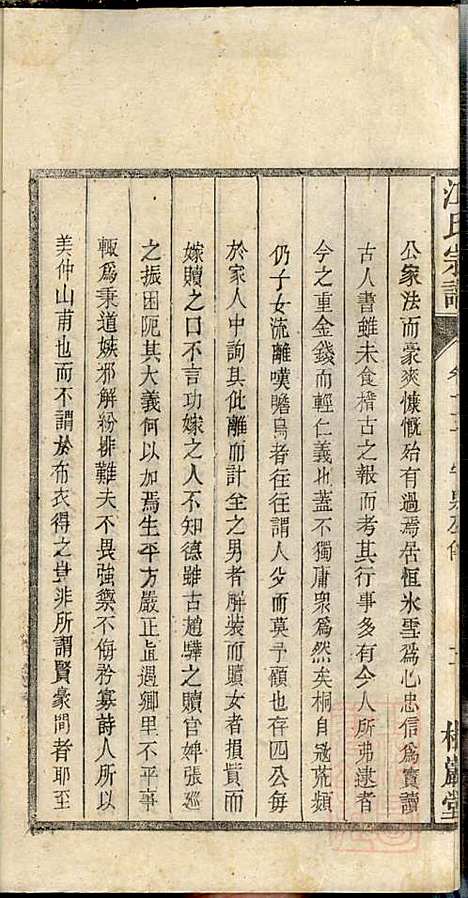 江氏宗譜
公家法而豪爽慷慨殆有過焉居恒氷雪爲心忠信爲寳讀
古人書雖未食稽古之報而考其行事多有今人所弗逮者
今之重金錢而輕仁義也蓋不獨庸衆爲然矣桐自冦荒頻
仍子女流離嘆瞻烏者往往謂人少而莫予顧也存四公每
於家人中詢其仳離而計至之男者解装而贖女者損貲而
嫁贖之口不言功嫁之人不知德雖古趙驊之贖官婢張廵
之振困阨其大義何以加焉生平方嚴正直遇鄉里不平事
輙爲秉道嫉邪解紛排難夫不畏強禦不侮矜寡詩人所以
美仲山甫也而不謂於布衣得之豈非所謂賢豪間者耶至
巖堂